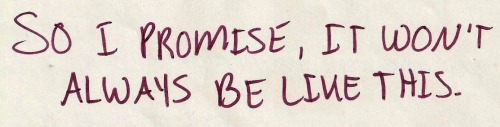 SO I PROMISE, IT WON'T
ALWAYS BE LIKE THIS.